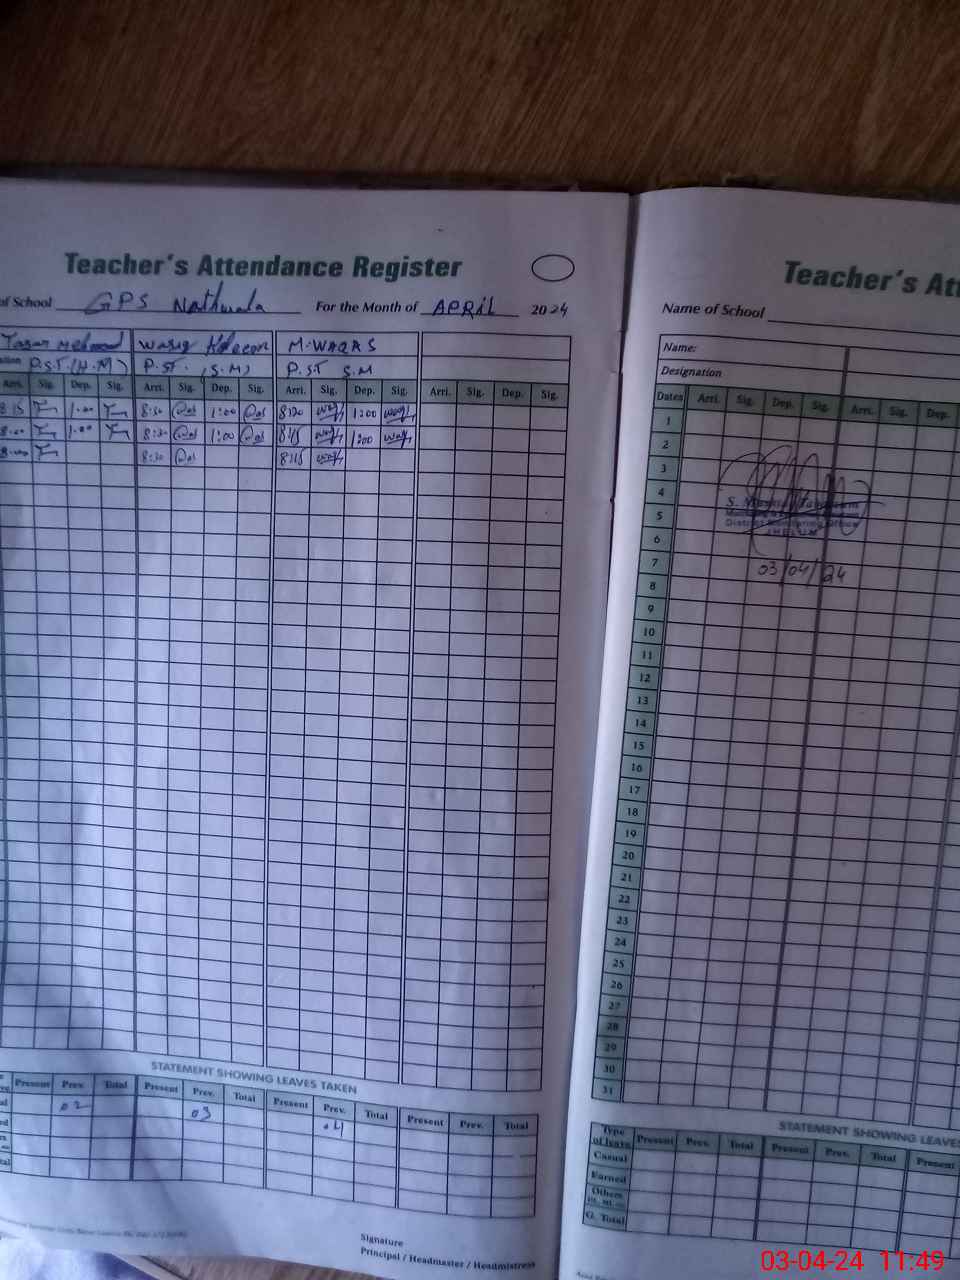 Teacher's Attendance Register
of School GPS Nathwala For the Month of APRIL 2024
M·WAQAS
P.S.T (H.M) P.ST. (S.M) P.ST S.M
Arri. Sig. Dep. Sig. Arri. Sig. Dep. Sig. Arri. Sig. Dep. Sig. Arri. Sig. Dep. Sig.
8:15 1:00 8:30 1:00 8:20 1:00
8:00 1:00 8:30 1:00 8:15 1:00
8:00 8:30 8:15
STATEMENT SHOWING LEAVES TAKEN
Present Prev. Total Present Prev. Total Present Prev. Total Present Prev. Total
02 03 04
Signature
Principal / Headmaster / Headmistress
Teacher's Att
Name of School
Name:
Designation
Dates Arri. Sig. Dep. Sig. Arri. Sig. Dep.
1
2
3
4
5
6
7
8
9
10
11
12
13
14
15
16
17
18
19
20
21
22
23
24
25
26
27
28
29
30
31
District Monitoring Officer
JHELUM
03/04/24
STATEMENT SHOWING LEAVES
Type of leave Present Prev. Total Present Prev. Total Present
Casual
Earned
Others
G. Total
03-04-24 11:49